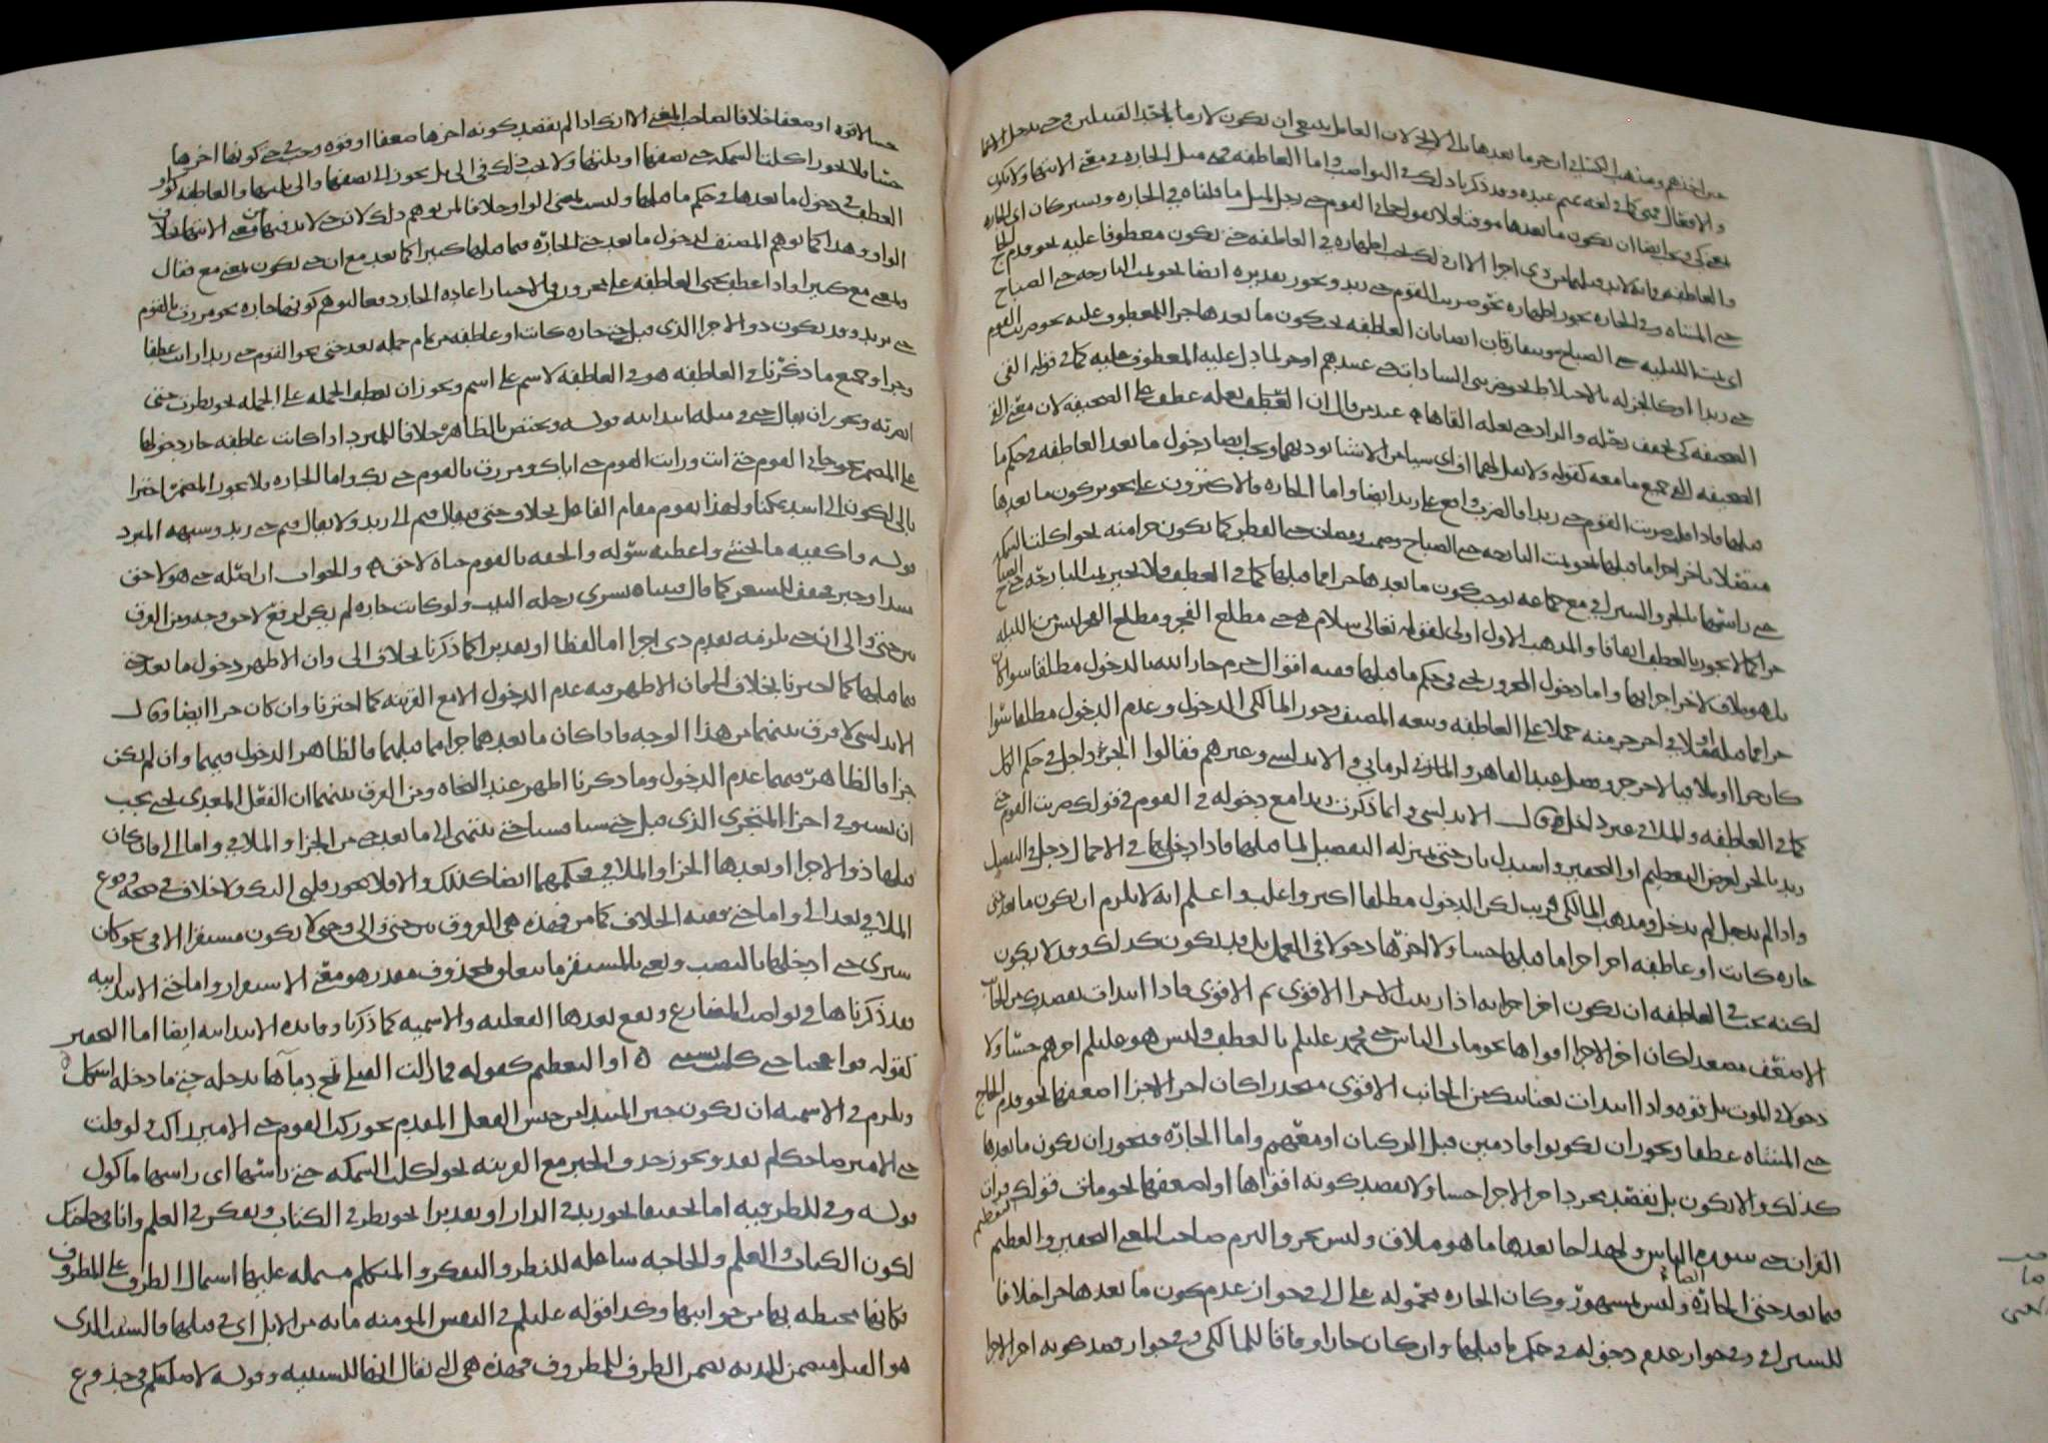 ومذهب الكسائي ان جر ما بعدها بالى لا بحتى لان العامل ينبغي ان يكون لازما باحد القبيلين وحتى تدخل الاسما
والافعال وقد ذكرنا ذلك في النواصب واما العاطفة فهي مثل الجارة في معنى الانتها ولا تكون
بمعنى كي ويجب ايضا ان يكون ما بعدها موقتا فلا تقول جاني القوم حتى رجل لمثل ما قلناه في الجارة ويشتركان اي الجارة
والعاطفة في انه لابد قبلهما من ذي اجزا الا ان ذلك يجب اظهاره في العاطفة حتى يكون معطوفا عليه نحو قدم الحاج
حتى المشاة وفي الجارة يجوز اظهاره نحو ضربت القوم حتى زيد ويجوز تقديره ايضا نحو نمت البارحة حتى الصباح
اي نمت الليلة حتى الصباح ويتفارقان ايضا بان العاطفة يجب كون ما بعدها جزا للمعطوف عليه نحو ضربت القوم
حتى زيدا او كالجزء له بالاختلاط نحو ضربني السادات حتى عبيدهم او جزا لما دل عليه المعطوف عليه كما في قوله القى
الصحيفة كي يخفف رحله والزاد حتى نعله القاها عند من قال ان نعله عطف على الصحيفة لان معنى القى
الصحيفة القى جميع ما معه ويجب ايضا دخول ما بعد العاطفة في حكم ما
قبلها فاذا قلت ضربت القوم حتى زيدا فالضرب واقع على زيد ايضا واما الجارة فالاكثرون على تجويز كون ما بعدها
متصلا باخر اجزا ما قبلها نحو نمت البارحة حتى الصباح وصمت رمضان حتى الفطر كما يكون جزا منه نحو اكلت السمكة
حتى راسها بالجر والسيرافي مع جماعة توجب كون ما بعدها جزا مما قبلها كما في العطف فلا يجيز نمت البارحة حتى الصباح
جرا كما لا يجوز بالعطف اتفاقا والمذهب الاول اولى لقوله تعالى سلام هي حتى مطلع الفجر ومطلع الفجر ليس من الليلة
بل هو ملاق لاخر اجزائها واما دخول المجرور بحتى في حكم ما قبلها ففيه اقوال جزم جار الله بالدخول مطلقا سوا كان
جزا مما قبله او ملاقي اخر جزء منه حملا على العاطفة وتبعه المصنف وجوز ابن مالك الدخول وعدم الدخول مطلقا سوا
كان جزا او ملاقيا لاخر جزء وفصل عبد القاهر والرماني والاندلسي وغيرهم فقالوا الجزء داخل في حكم الكل
كما في العاطفة والملاقي غير داخل قال الاندلسي وانما ذكرت زيدا مع دخوله في القوم في قولك ضربت القوم حتى
زيد بالجر لغرض التعظيم او التحقير واستدل بان حتى بمنزلة التفصيل لما قبلها فاذا دخل في الاجمال دخل في التفصيل
واذا لم يدخل لم يدخل ومذهب ابن مالك قريب لكن الدخول مطلقا اكثر واغلب واعلم انه لا يلزم ان يكون ما بعد حتى
جارة كانت او عاطفة اخر اجزا ما قبلها حسا ولا اخرها دخولا في العمل بل قد يكون كذلك وقد لا يكون
لكنه يجب في العاطفة ان يكون اخر اجزائه اذا رتبت الاجزا الاقوى ثم الاقوى فاذا ابتدات بقصدك من الجانب
الاضعف مصعدا كان اخر الاجزا اقواها نحو مات الناس حتى محمد عليلم بالعطف وليس هو عليلم اخرهم حسا ولا
دخولا في الموت بل قوة واذا ابتدات بعنايتك من الجانب الاقوى منحدرا كان اخر الاجزا اضعفها نحو قدم الحاج
حتى المشاة عطفا ويجوز ان يكونوا قادمين قبل الركبان او معهم واما الجارة فيجوز ان يكون ما بعدها
كذلك والا يكون بل تقصد بمجرد اخر الاجزا حسا ولا تقصد كونه اقواها او اضعفها نحو ما في قولك قرات
القران حتى سورة الناس ولهذا جا بعدها ما هو ملاق وليس بجزء والتزم صاحب المغني التحقير والتعظيم
فيما بعد حتى الجارة ايضا وليس بمشهور وكان الجارة محمولة على الى في جواز عدم كون ما بعدها جزا خلافا
للسيرافي وفي جواز عدم دخوله في حكم ما قبلها وان كان جزا وفاقا لابن مالك وفي جواز قصد كونه اخر الاجزا
حسا لا قوة او ضعفا خلافا لصاحب المغني الا انك اذا لم تقصد كونه اخرها ضعفا او قوة وجب في حتى كونها اخرها
حسا فلا يجوز اكلت السمكة حتى نصفها او ثلثها ولا يجب ذلك في الى بل يجوز الى نصفها والى ثلثها والعاطفة كواو
العطف في دخول ما بعدها في حكم ما قبلها وليست بمعنى الواو خلافا لمن توهم ذلك لان حتى لابد فيها من معنى الانتها بخلاف
الواو وهذا كما توهم المصنف لدخول ما بعد حتى الجارة فيما قبلها كثيرا كما بعد مع ان حتى تكون بمعنى مع فقال
وبمعنى مع كثيرا واذا عطف بحتى العاطفة على مجرور فالاختيار اعادة الجار دفعا لتوهم كونها جارة نحو مررت بالقوم
حتى بزيد وقد يكون ذو الاجزا الذي قبل حتى جارة كانت او عاطفة من تمام جملة بعد حتى نحو القوم حتى زيدا رايت عطفا
وجرا وجميع ما ذكرنا في العاطفة هو في العاطفة لاسم على اسم ويجوز ان تعطف الجملة على الجملة نحو نظرت حتى
ابصرته ويجوز ان يقال حتى في مثله ابتدائية قوله ويختص بالظاهر خلافا للمبرد اذا كانت عاطفة جاز دخولها
على المضمر نحو جاني القوم حتى انت ورايت القوم حتى اياك ومررت بالقوم حتى بك واما الجارة فلا تجر المضمر اجتزا
بالى لكون الى اشد تمكنا ولهذا تقوم مقام الفاعل بخلاف حتى فيقال قيم الى زيد ولا يقال قيم حتى زيد وشبهه المبرد
قوله واكفيه ما يخشى واعطيه سؤله والحقه بالقوم حتاه لاحق والجواب ان اصله حتى هو لاحق
مبتدا وخبر فخفف للشعر كما قال فبيناه يشري رحله البيت ولو كانت جارة لم يكن لرفع لاحق وجه ومن الفرق
بين حتى والى ان حتى يلزمه تقديم ذي اجزا اما لفظا او تقديرا كما ذكرنا بخلاف الى وان الاظهر دخول ما بعد حتى
فيما قبلها كما اخترنا بخلاف الى فان الاظهر فيه عدم الدخول الا مع القرينة كما اخترنا وان كان جزا ايضا وقال
الاندلسي لا فرق بينهما من هذا الوجه فاذا كان ما بعدهما جزا مما قبلهما فالظاهر الدخول فيهما وان لم يكن
جزا فالظاهر فيهما عدم الدخول وما ذكرنا اظهر عند النحاة ومن الفرق بينهما ان الفعل المعدى بحتى يجب
ان يستوفي اجزا المتجزي الذي قبل حتى شيئا فشيئا حتى ينتهي الى ما بعد حتى من الجزا والملاقي واما الى فان كان
قبلها ذو الاجزا او بعدها الجزا والملاقي فحكمهما ايضا كذلك والا فلا نحو قلبي اليك ولا خلاف في صحة وقوع
الملاقي بعد الى واما حتى ففيه الخلاف كما مر فهذه هي الفروق بين حتى والى وحتى لا تكون مستقرا الا في نحو كان
سيري حتى ادخلها بالنصب ونعني بالمستقر ما يتعلق بمحذوف مقدر هو معنى الاستقرار واما حتى الابتدائية
فقد ذكرناها في نواصب المضارع وتقع بعدها الفعلية والاسمية كما ذكرنا وفائدة الابتدائية ايضا اما التحقير
كقوله فوا عجبا حتى كليب تسبني ٥ او التعظيم كقوله فما زالت القتلى تمج دماءها بدجلة حتى ما دجلة اشكل ٥
ويلزم في الاسمية ان يكون خبر المبتدا من جنس الفعل المقدم نحو ركب القوم حتى الامير راكب لو قلت
حتى الامير ضاحك لم يفد ويجوز حذف الخبر مع القرينة نحو اكلت السمكة حتى راسها اي راسها ماكول
قوله وفي للظرفية اما تحقيقا نحو زيد في الدار او تقديرا نحو نظر في الكتاب وتفكر في العلم وانا في حاجتك
لكون الكتاب والعلم والحاجة شاغلة للنظر والتفكر والمتكلم مشتملة عليها اشتمال الظرف على المظروف
فكانها محيطة بها من جوانبها وكذا قوله عليلم في النفس المومنة مائة من الابل اي في قتلها فالسبب الذي
هو القتل متضمن للدية تضمن الظرف للمظروف فهذه هي التي يقال انها للسببية وقوله لاصلبنكم في جذوع